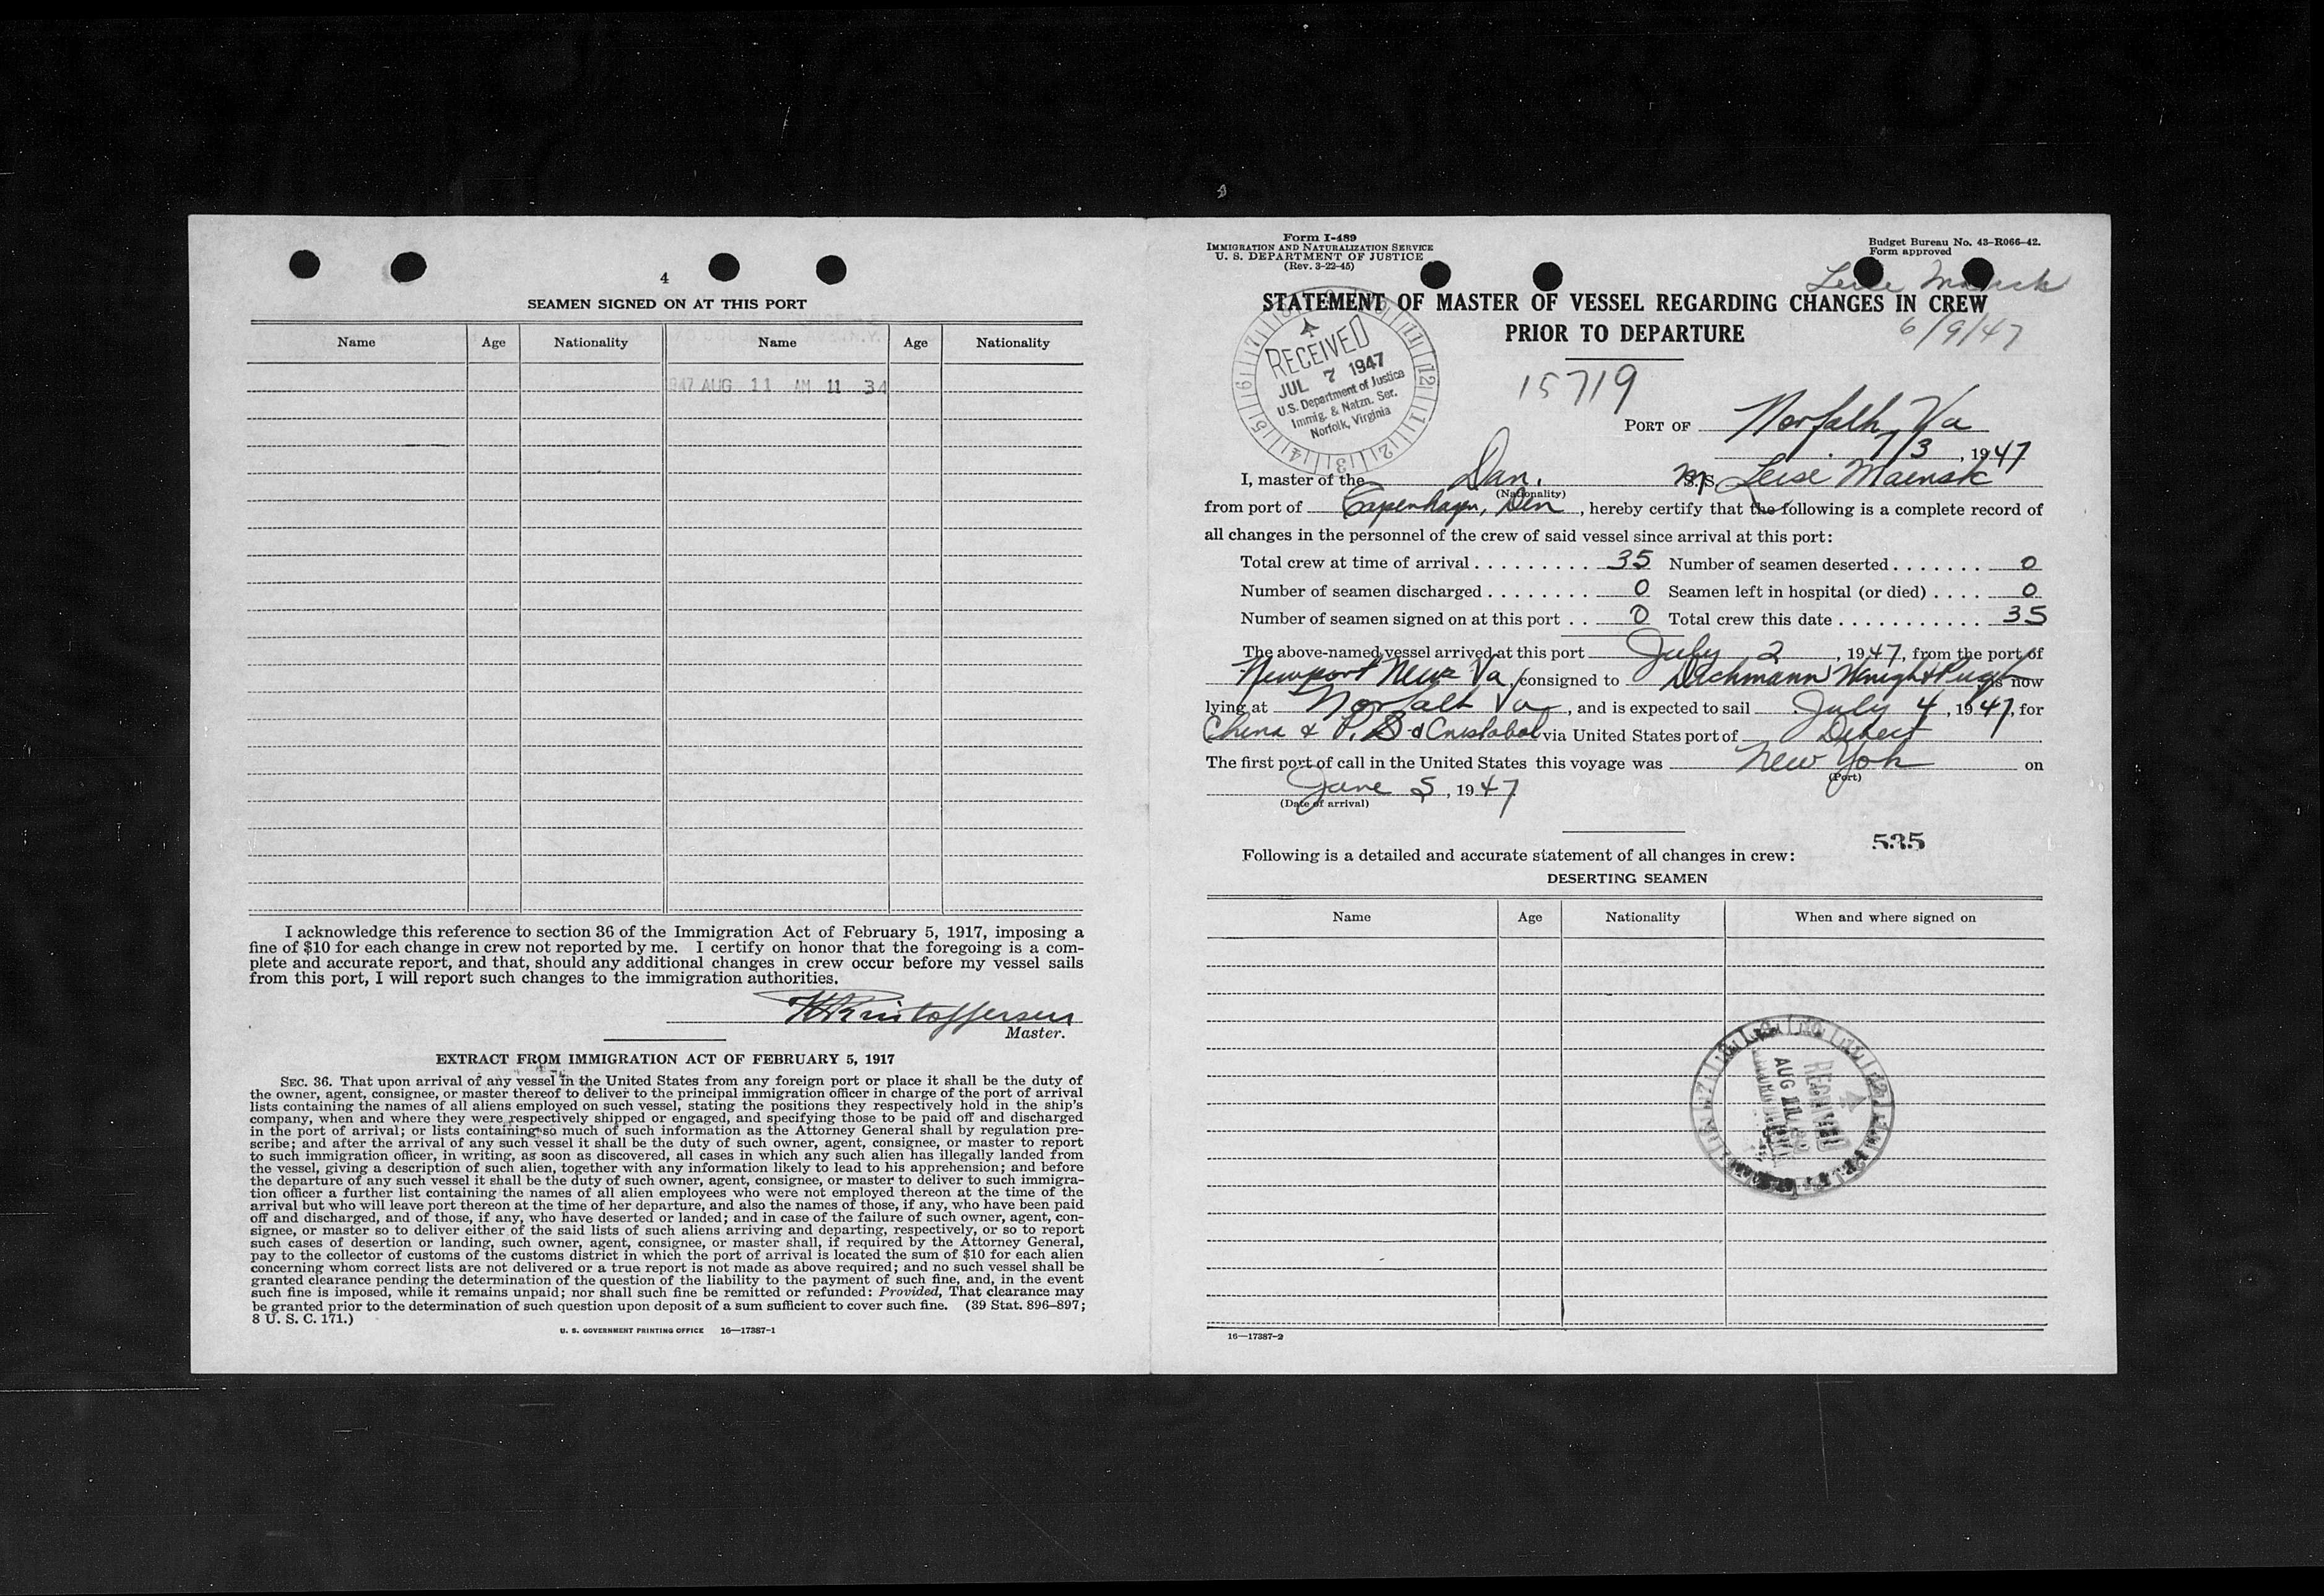 4
SEAMEN SIGNED ON AT THIS PORT
Name Age Nationality Name Age Nationality
1947 AUG 11 AM 11 34
I acknowledge this reference to section 36 of the Immigration Act of February 5, 1917, imposing a
fine of $10 for each change in crew not reported by me. I certify on honor that the foregoing is a com-
plete and accurate report, and that, should any additional changes in crew occur before my vessel sails
from this port, I will report such changes to the immigration authorities.
Kristoffersen
Master.
EXTRACT FROM IMMIGRATION ACT OF FEBRUARY 5, 1917
SEC. 36. That upon arrival of any vessel in the United States from any foreign port or place it shall be the duty of
the owner, agent, consignee, or master thereof to deliver to the principal immigration officer in charge of the port of arrival
lists containing the names of all aliens employed on such vessel, stating the positions they respectively hold in the ship's
company, when and where they were respectively shipped or engaged, and specifying those to be paid off and discharged
in the port of arrival; or lists containing so much of such information as the Attorney General shall by regulation pre-
scribe; and after the arrival of any such vessel it shall be the duty of such owner, agent, consignee, or master to report
to such immigration officer, in writing, as soon as discovered, all cases in which any such alien has illegally landed from
the vessel, giving a description of such alien, together with any information likely to lead to his apprehension; and before
the departure of any such vessel it shall be the duty of such owner, agent, consignee, or master to deliver to such immigra-
tion officer a further list containing the names of all alien employees who were not employed thereon at the time of the
arrival but who will leave port thereon at the time of her departure, and also the names of those, if any, who have been paid
off and discharged, and of those, if any, who have deserted or landed; and in case of the failure of such owner, agent, con-
signee, or master so to deliver either of the said lists of such aliens arriving and departing, respectively, or so to report
such cases of desertion or landing, such owner, agent, consignee, or master shall, if required by the Attorney General,
pay to the collector of customs of the customs district in which the port of arrival is located the sum of $10 for each alien
concerning whom correct lists are not delivered or a true report is not made as above required; and no such vessel shall be
granted clearance pending the determination of the question of the liability to the payment of such fine, and, in the event
such fine is imposed, while it remains unpaid; nor shall such fine be remitted or refunded: Provided, That clearance may
be granted prior to the determination of such question upon deposit of a sum sufficient to cover such fine. (39 Stat. 896-897;
8 U. S. C. 171.)
U. S. GOVERNMENT PRINTING OFFICE 16—17387-1
Form I-489
IMMIGRATION AND NATURALIZATION SERVICE
U. S. DEPARTMENT OF JUSTICE
(Rev. 3-22-45)
Budget Bureau No. 43-R066-42.
Form approved
Leise Maersk
STATEMENT OF MASTER OF VESSEL REGARDING CHANGES IN CREW
PRIOR TO DEPARTURE
6/9/47
RECEIVED
JUL 7 1947
U.S. Department of Justice
Immig. & Natzn. Ser.
Norfolk, Virginia
15719
PORT OF Norfolk, Va
7/3, 1947
I, master of the Dan. M/S Leise Maersk
(Nationality)
from port of Copenhagen, Den, hereby certify that the following is a complete record of
all changes in the personnel of the crew of said vessel since arrival at this port:
Total crew at time of arrival . . . . . . . . . 35 Number of seamen deserted . . . . . . . 0
Number of seamen discharged . . . . . . . . 0 Seamen left in hospital (or died) . . . . 0
Number of seamen signed on at this port . . 0 Total crew this date . . . . . . . . . . . 35
The above-named vessel arrived at this port July 2, 1947, from the port of
Newport News Va, consigned to is now
lying at Norfolk Va, and is expected to sail July 4, 1947, for
China & P. & Cristobal via United States port of Direct
The first port of call in the United States this voyage was New York on
(Port)
June 5, 1947
(Date of arrival)
535
Following is a detailed and accurate statement of all changes in crew:
DESERTING SEAMEN
Name Age Nationality When and where signed on
RECEIVED
AUG 11
16—17387-2